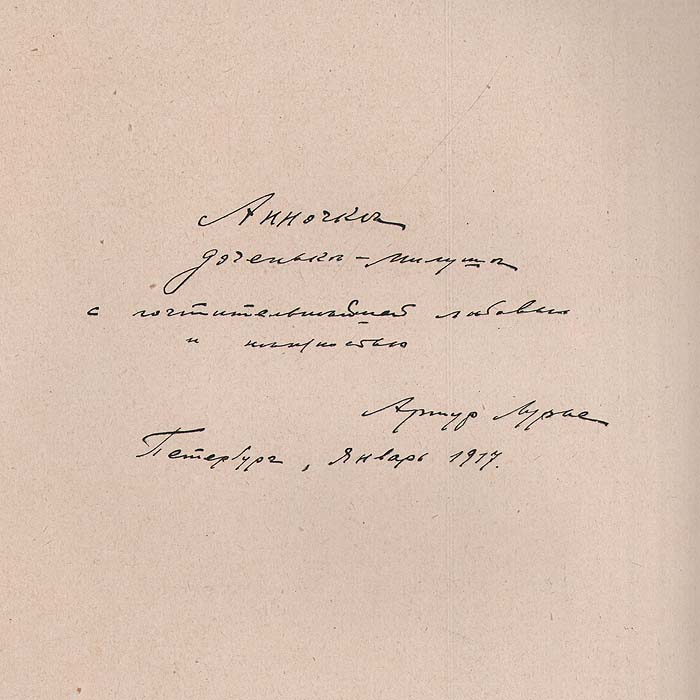 Анночка
доченька - милуша
с почтительнейшей любовью
и нежностью
Артур Лурье
Петербург, Январь 1917.